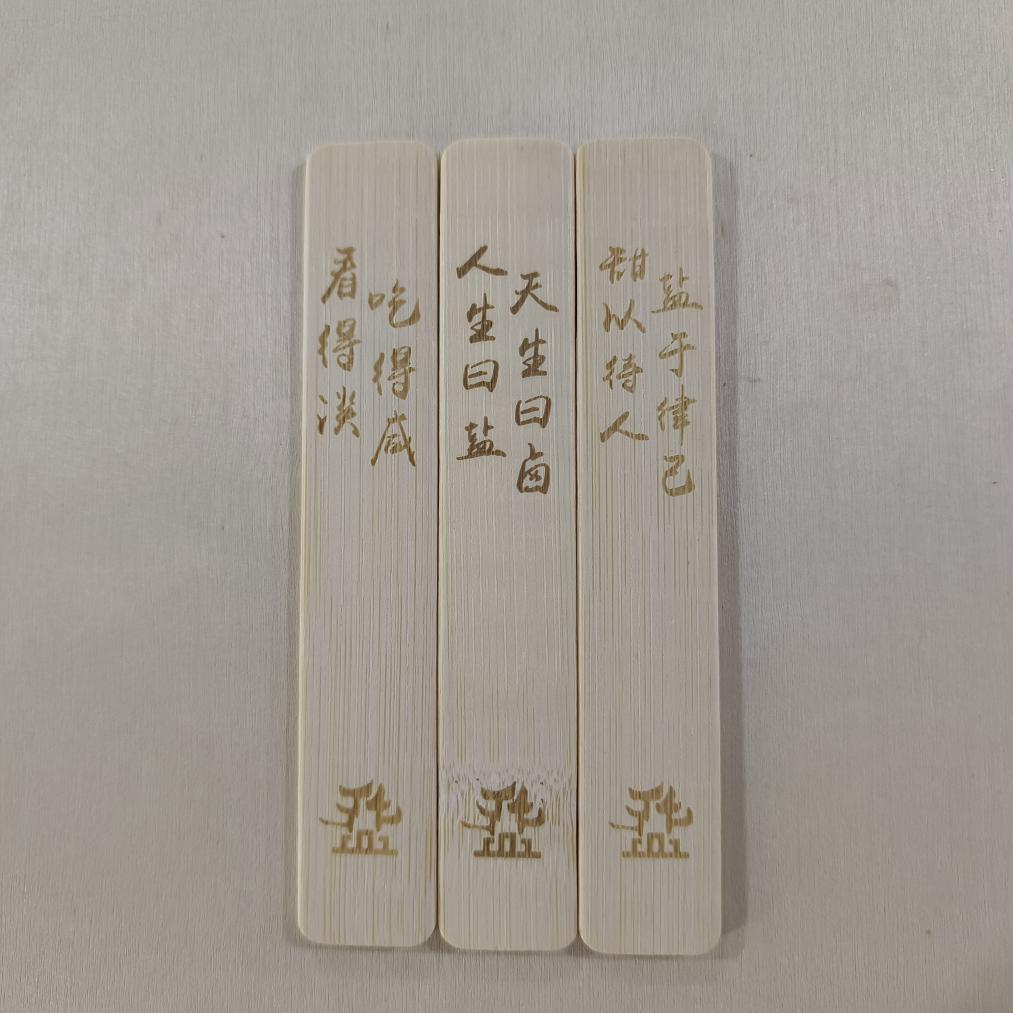 盐于律己
甜以待人
天生曰卤
人生曰盐
吃得咸
看得淡